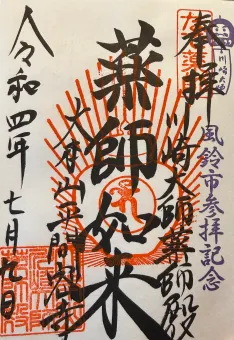 奉拝
川崎大師薬師殿
風鈴市参拝記念
薬師如来
大本山平間寺
令和四年七月九日